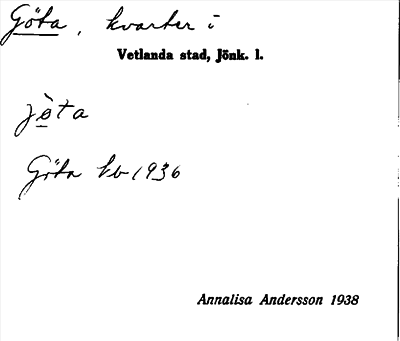 Göta, kvarter i
Vetlanda stad, Jönk. l.
jò̲ta
Göta kv 1936
Annalisa Andersson 1938